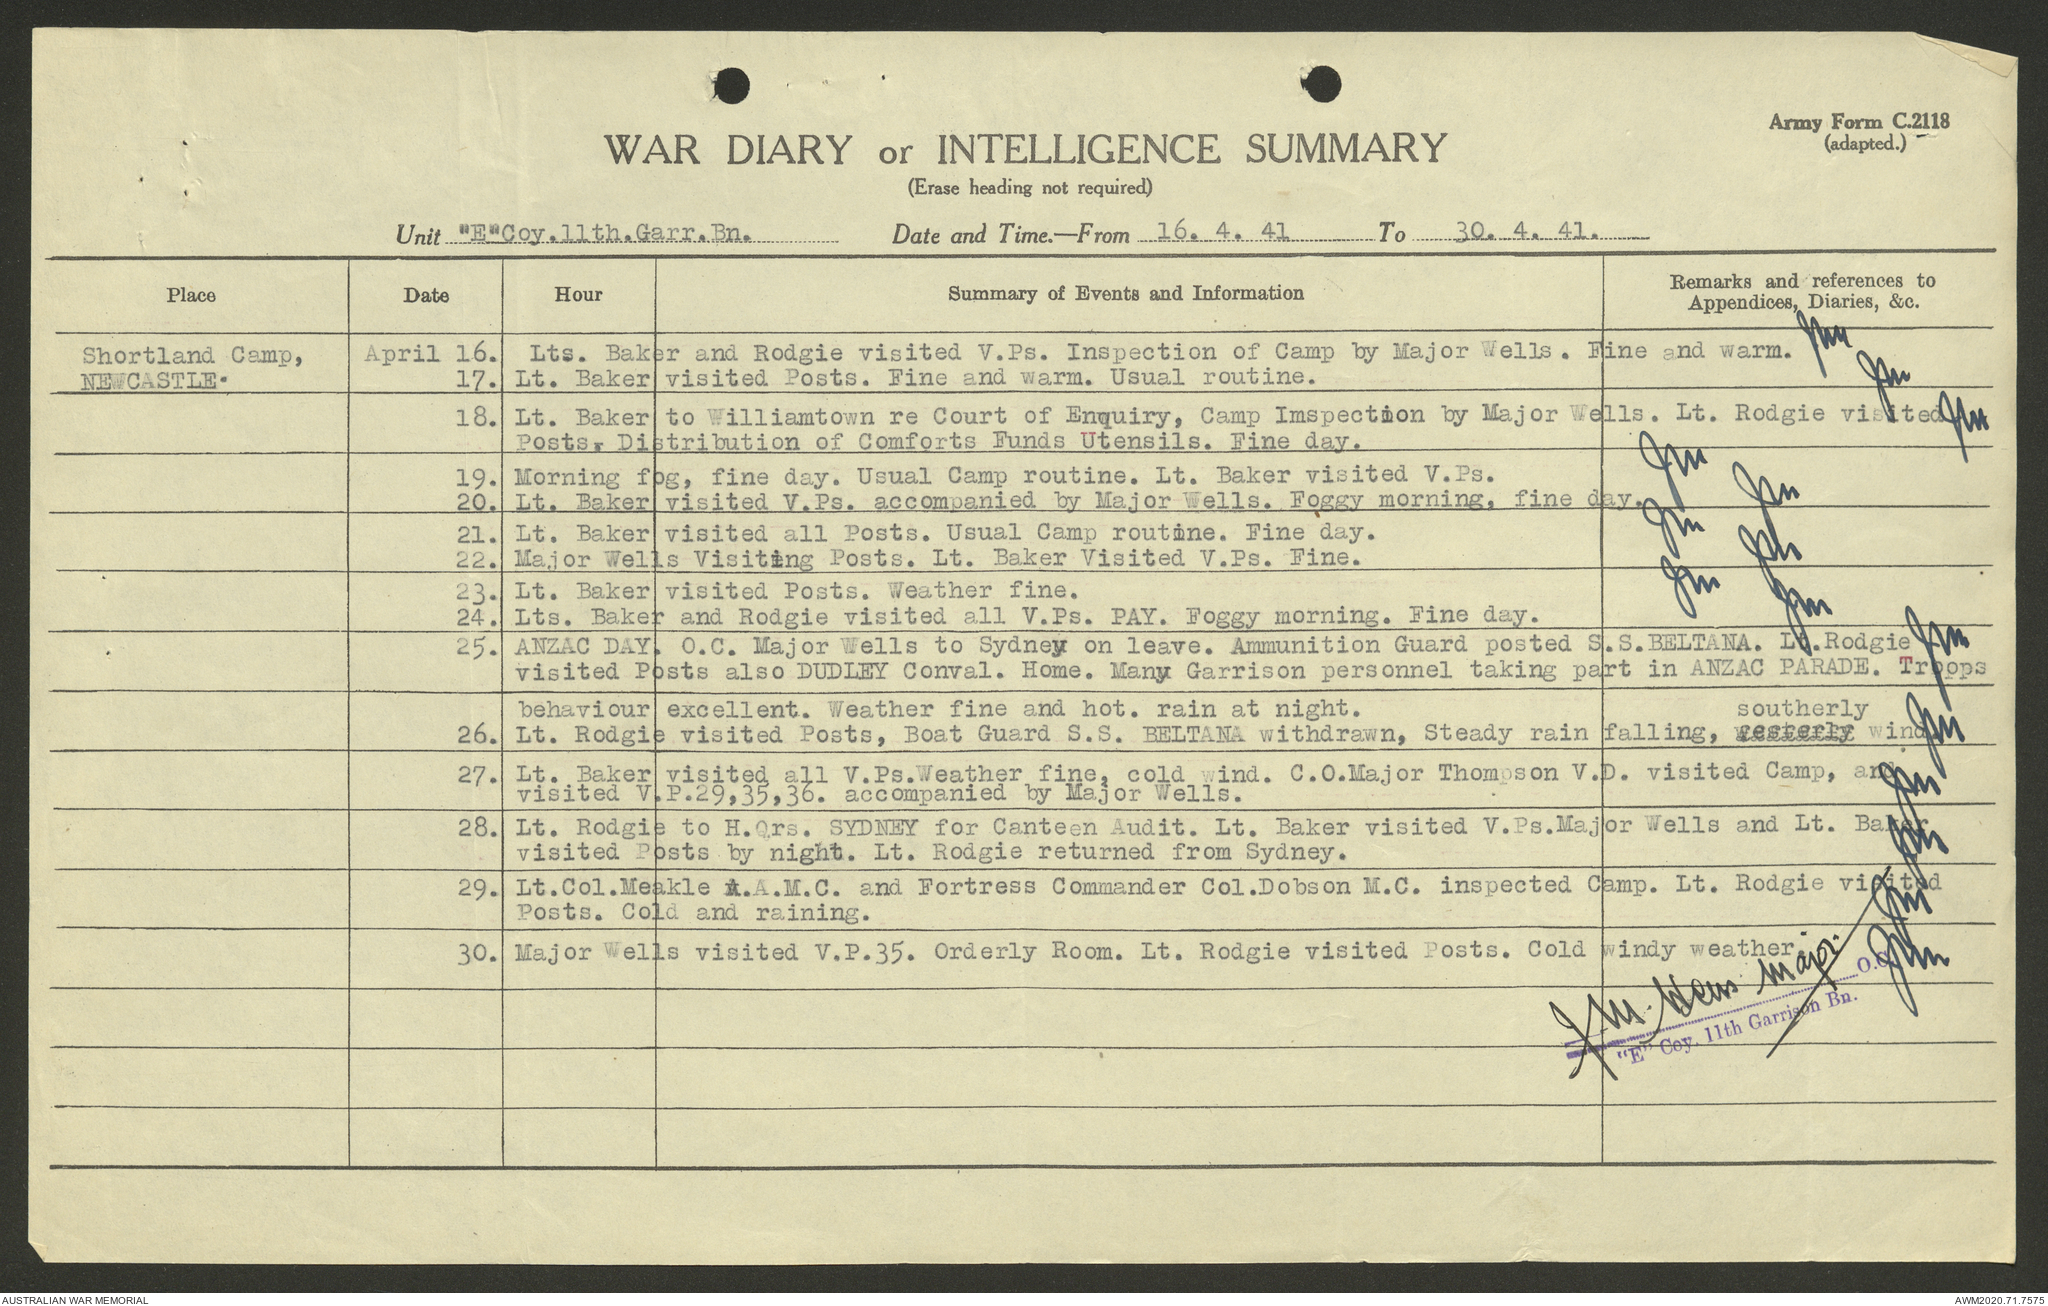 WAR DIARY or INTELLIGENCE SUMMARY
(Erase heading not required)
Army Form C.2118
(adapted.)
Unit "E"Coy.11th.Garr.Bn. Date and Time.—From 16. 4. 41 To 30. 4. 41.
Place Date Hour Summary of Events and Information Remarks and references to
Appendices, Diaries, &c.
Shortland Camp, April 16. Lts. Baker and Rodgie visited V.Ps. Inspection of Camp by Major Wells. Fine and warm.
NEWCASTLE. 17. Lt. Baker visited Posts. Fine and warm. Usual routine.
18. Lt. Baker to Williamtown re Court of Enquiry, Camp Imspection by Major Wells. Lt. Rodgie visited
Posts, Distribution of Comforts Funds Utensils. Fine day.
19. Morning fog, fine day. Usual Camp routine. Lt. Baker visited V.Ps.
20. Lt. Baker visited V.Ps. accompanied by Major Wells. Foggy morning, fine day.
21. Lt. Baker visited all Posts. Usual Camp routine. Fine day.
22. Major Wells Visiting Posts. Lt. Baker Visited V.Ps. Fine.
23. Lt. Baker visited Posts. Weather fine.
24. Lts. Baker and Rodgie visited all V.Ps. PAY. Foggy morning. Fine day.
25. ANZAC DAY. O.C. Major Wells to Sydney on leave. Ammunition Guard posted S.S.BELTANA. Lt.Rodgie
visited Posts also DUDLEY Conval. Home. Many Garrison personnel taking part in ANZAC PARADE. Troops
behaviour excellent. Weather fine and hot. rain at night.
southerly
26. Lt. Rodgie visited Posts, Boat Guard S.S. BELTANA withdrawn, Steady rain falling, westerly wind
27. Lt. Baker visited all V.Ps.Weather fine, cold wind. C.O.Major Thompson V.D. visited Camp, and
visited V.P.29,35,36. accompanied by Major Wells.
28. Lt. Rodgie to H.Qrs. SYDNEY for Canteen Audit. Lt. Baker visited V.Ps.Major Wells and Lt. Baker
visited Posts by night. Lt. Rodgie returned from Sydney.
29. Lt.Col.Meakle A.A.M.C. and Fortress Commander Col.Dobson M.C. inspected Camp. Lt. Rodgie visited
Posts. Cold and raining.
30. Major Wells visited V.P.35. Orderly Room. Lt. Rodgie visited Posts. Cold windy weather.
Wells Major
O.C.
"E" Coy. 11th Garrison Bn.
AUSTRALIAN WAR MEMORIAL
AWM2020.71.7575